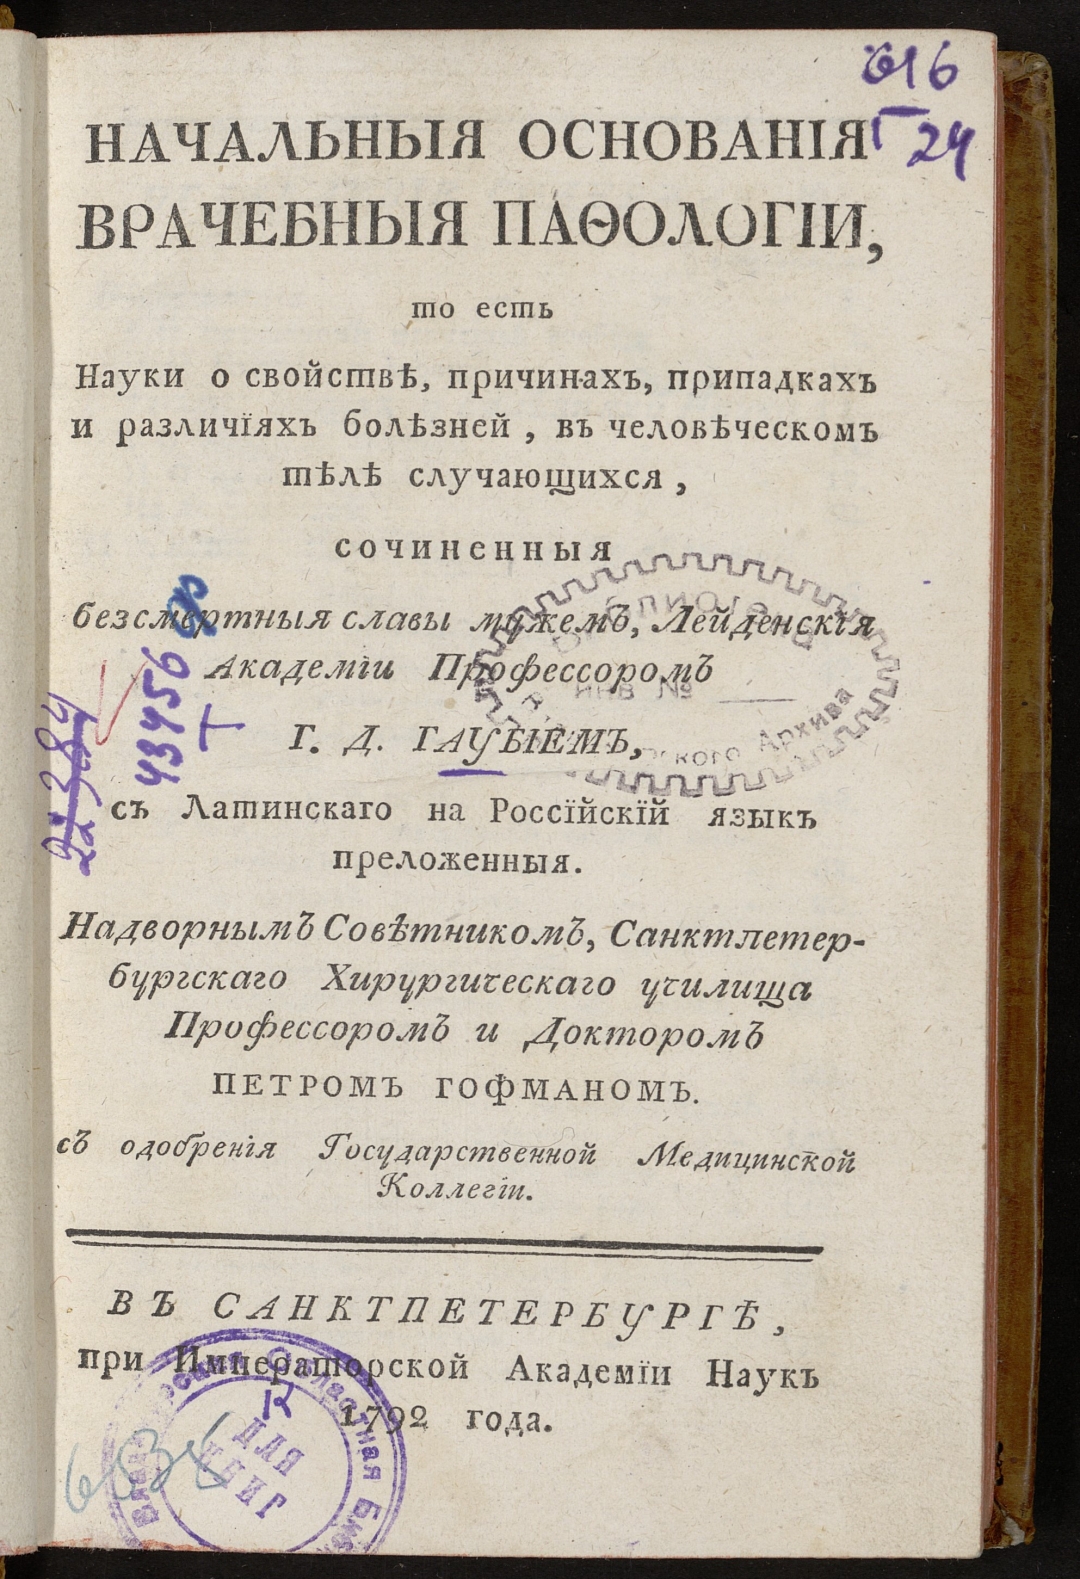 616
Г 24
НАЧАЛЬНЫЯ ОСНОВАНІЯ
ВРАЧЕБНЫЯ ПАѲОЛОГІИ,
то есть
Науки о свойствѣ, причинахъ, припадкахъ
и различїяхъ болѣзней, въ человѣческомъ
тѣлѣ случающихся,
сочиненныя
безсмертныя славы мужемъ, Лейденскія
Академіи Профессоромъ
Г. Д. ГАУБІЕМЪ,
съ Латинскаго на Россїйскїй языкъ
преложенныя.
Надворнымъ Совѣтникомъ, Санктпетер-
бургскаго Хирургическаго училища
Профессоромъ и Докторомъ
ПЕТРОМЪ ГОФМАНОМЪ.
съ одобренія Государственной Медицинской
Коллегіи.
ВЪ САНКТПЕТЕРБУРГѢ,
при Императорской Академїи Наукъ
1792 года.
43456
Т
Библиотека
ИНВ №
Архива
Областная
ДЛЯ
КНИГ